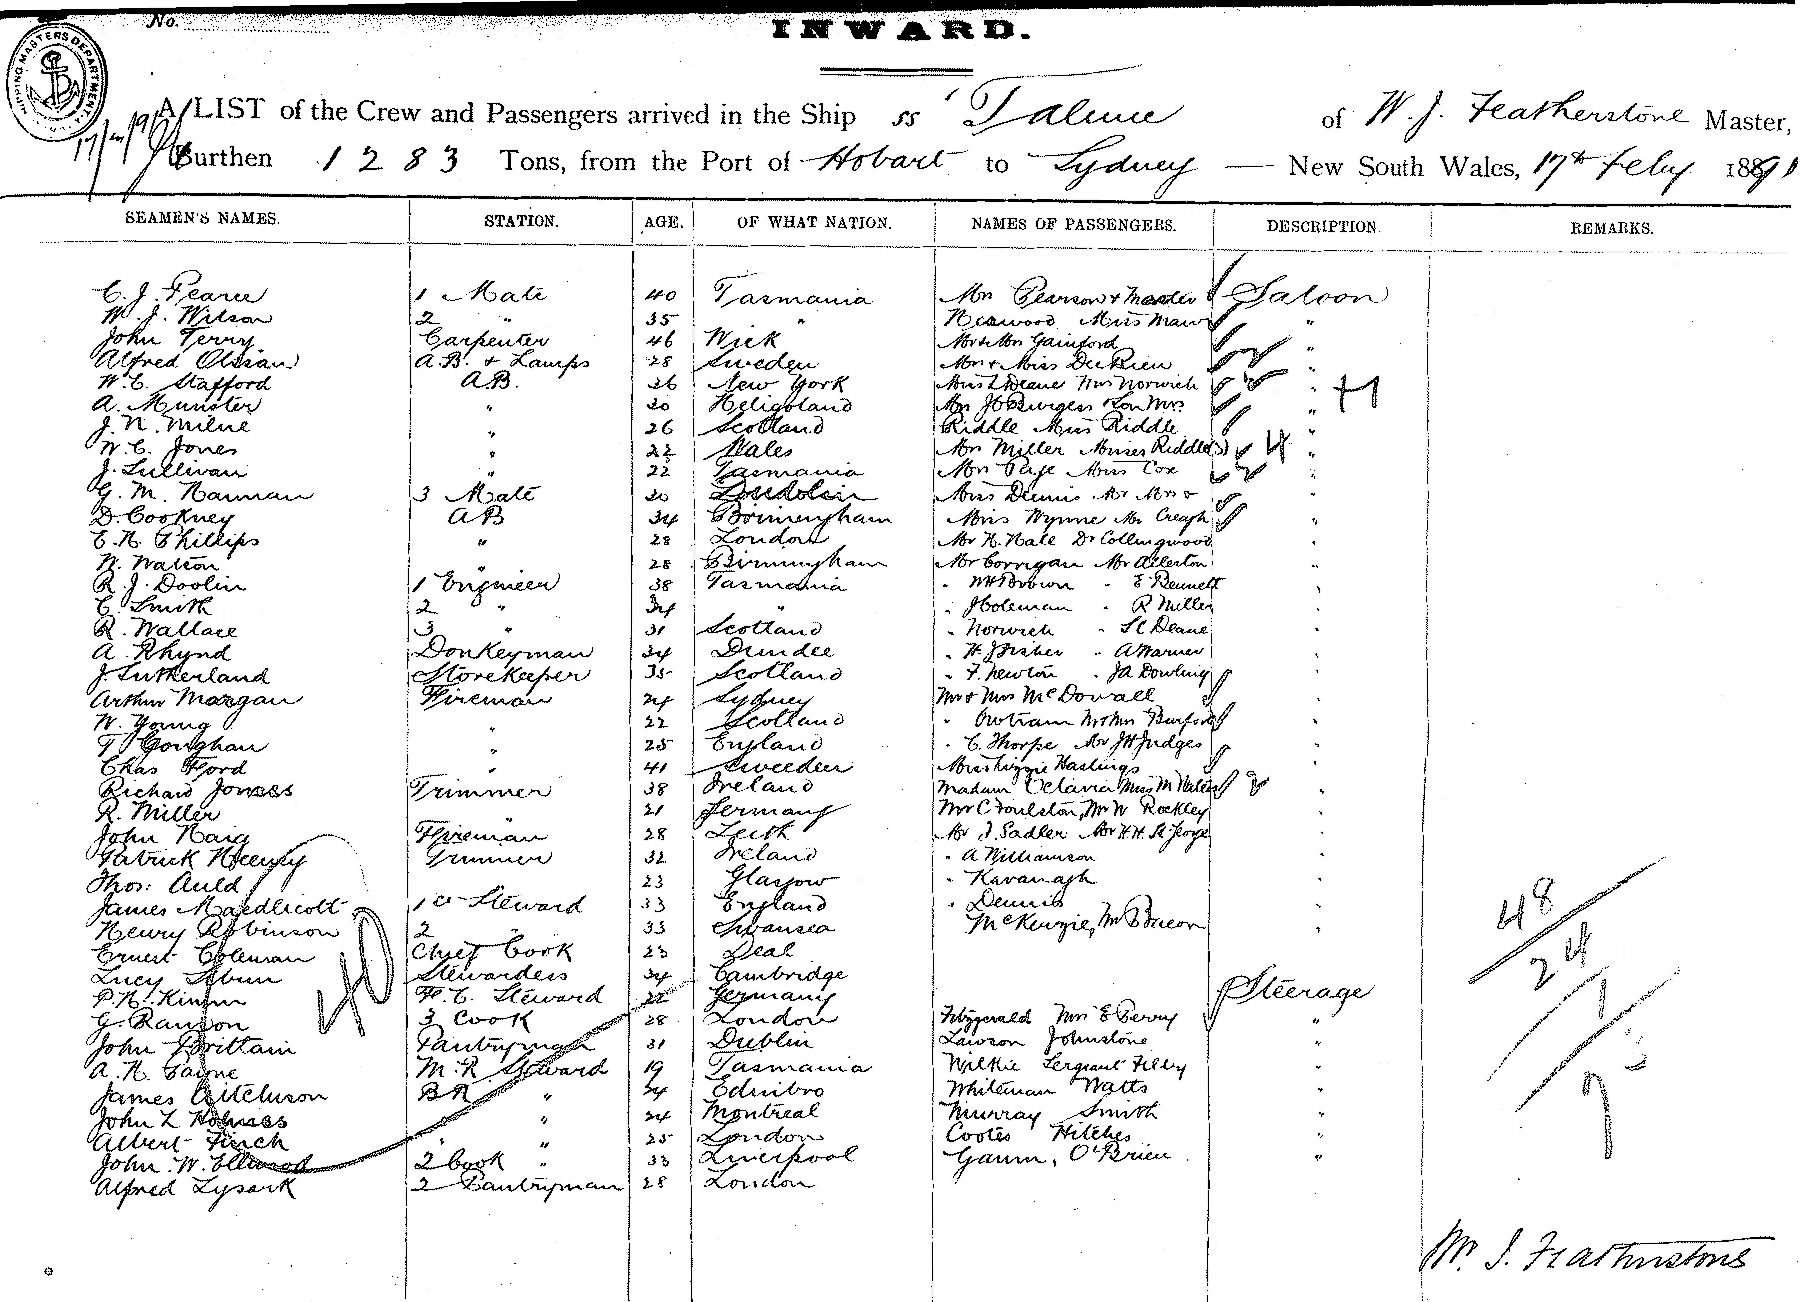 No.
INWARD.
SHIPPING MASTERS DEPARTMENT
A LIST of the Crew and Passengers arrived in the Ship ss Talune of W. J. Featherstone Master,
Burthen 1283 Tons, from the Port of Hobart to Sydney — New South Wales, 17th Feby 1891
SEAMEN'S NAMES. STATION. AGE. OF WHAT NATION. NAMES OF PASSENGERS. DESCRIPTION. REMARKS.
C. J. Pearce 1 Mate 40 Tasmania Mrs Pearson + Master Saloon
W. J. Wilson 2 " 35 " Miss
John Terry Carpenter 46 Wick Mr & Mrs Gainford "
Alfred A.B. + Lamps 28 Sweden Mrs + Miss "
W. C. Stafford A.B. 36 New York Miss L Deane Mrs Norwich " 41
A. Munster " 30 Heligoland Mrs J C Burgess & Son Mrs "
J. N. Milne " 26 Scotland Riddle Miss Riddle "
W. C. Jones " 22 Wales Mrs Miller Misses Riddle 4 "
J. Sullivan " 22 Tasmania Mrs Page Miss Cox "
G. M. Hannan 3 Mate 30 Miss Dennis Mr Mrs + "
D. Cockney AB 34 Birmingham Miss Wynne Mr Creagh "
E. H. Phillips " 28 London Mr H. Hall Dr Collingwood "
W. Watson " 28 Birmingham Mr Corrigan Mr Allerton "
R. J. Doolin 1 Engineer 38 Tasmania " Brown " E Bennett "
C. Smith 2 " 34 " " J Coleman " R Miller "
R. Wallace 3 " 31 Scotland " Norwich " Deane "
A. Rhynd Donkeyman 34 Dundee " H J Fisher " A Warner "
J. Sutherland Storekeeper 35 Scotland " F. Newton " JA Dowling "
Arthur Morgan Fireman 24 Sydney Mr & Mrs McDowall "
W. Young " 22 Scotland " Outram Mr & Mrs Burford "
T Goughan " 25 England " C. Thorpe Mr J H Judges "
Chas Fjord " 41 Sweeden Miss Lizzie Hastings "
Richard Jones Trimmer 38 Ireland Madam Octavia Miss M "
R. Miller " 21 Germany Mr C Foulston, Mr W Rockley "
John Haig Fireman 28 Leith Mr J. Sadler Mr H. H. St George "
Patrick Trimmer 32 Ireland " A Williamson "
Thos: Auld 23 Glasgow " Kavanagh "
James Maedlicott 1st Steward 33 England " Dennis "
Henry Robinson 2 " 33 Swansea McKenzie, Mr "
Ernest Coleman Chief Cook 23 Deal
Lucy Stewardess 34 Cambridge
P. H. Kimm F. C. Steward 22 Germany Steerage
G. Ranson 3 Cook 28 London Fitzgerald Mrs E Berry "
John Brittain Pantryman 31 Dublin Lawson Johnstone "
A. H. Payne M. R. Steward 19 Tasmania Wilkie Sergeant Filby "
James Aitchison BR " 24 Edinbro Whiteman Watts "
John L Holmes " 24 Montreal Murray Smith "
Albert Finch " " 25 London Cootes Hitches "
John W. Ellwood 2 Cook " 33 Liverpool Gaum, O'Brien "
Alfred Lysark 2 Pantryman 28 London
40
48
24
1
7
W. J. Featherstone